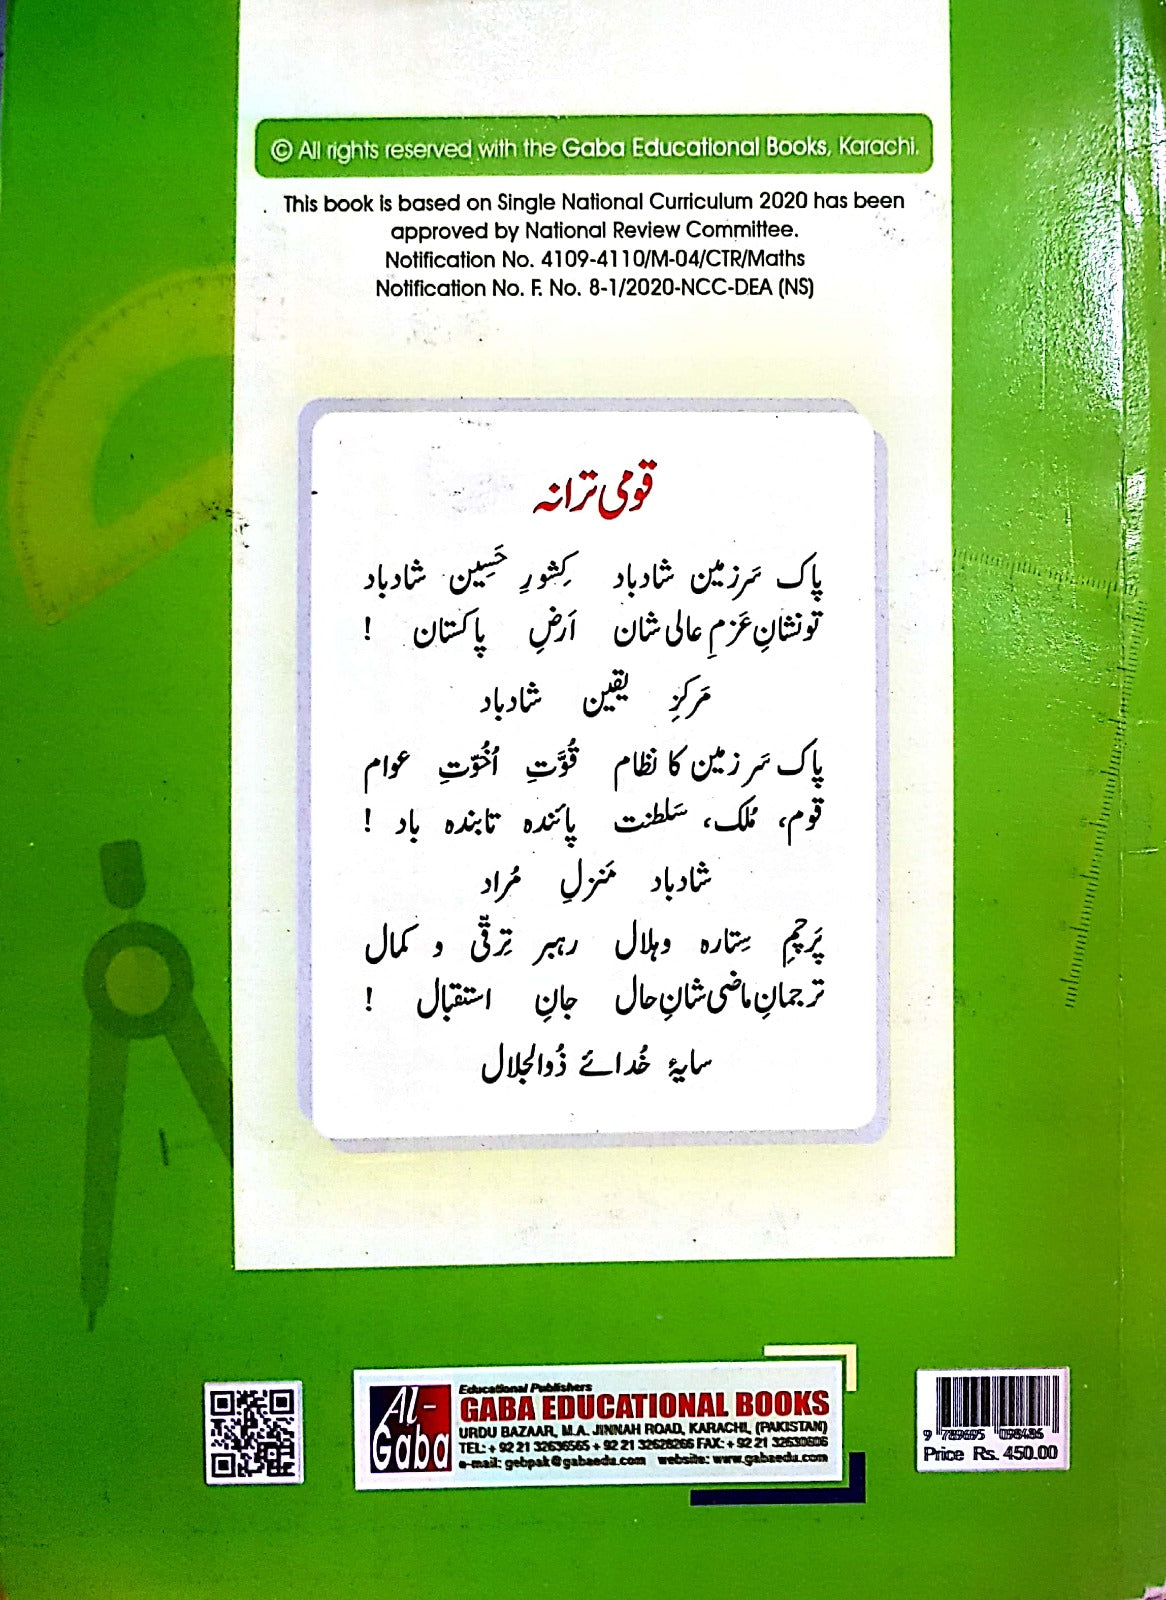 © All rights reserved with the Gaba Educational Books, Karachi.
This book is based on Single National Curriculum 2020 has been
approved by National Review Committee.
Notification No. 4109-4110/M-04/CTR/Maths
Notification No. F. No. 8-1/2020-NCC-DEA (NS)
قومی ترانہ
پاک سَرزمین شادباد کِشورِ حَسِین شادباد
تو نشانِ عَزمِ عالی شان اَرضِ پاکستان !
مَرکزِ یقین شادباد
پاک سَرزمین کا نظام قُوَّتِ اُخُوّتِ عوام
قوم، مُلک، سَلطنت پائندہ تابندہ باد !
شادباد مَنزلِ مُراد
پَرچمِ سِتارہ وہلال رہبرِ تِرقّی و کمال
ترجمانِ ماضی شانِ حال جانِ استقبال !
سایۂ خُدائے ذُوالجلال
Al-
Gaba
Educational Publishers
GABA EDUCATIONAL BOOKS
URDU BAZAAR, M.A. JINNAH ROAD, KARACHI, (PAKISTAN)
TEL: + 92 21 32636565 + 92 21 32628266 FAX: + 92 21 32630606
e-mail: gebpak@gabaedu.com website: www.gabaedu.com
9 789695 098486
Price Rs. 450.00